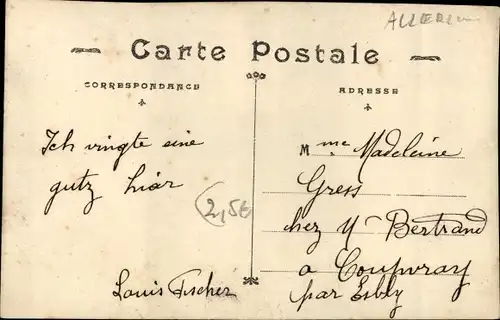 ALLERI
Carte Postale
CORRESPONDANCE
ADRESSE
Ich vingte eine
gutz hiar
(2,5€
Louis Fischer
Mme Madeleine
Gress
chez Mr Bertrand
a Coupvray
par Esbly